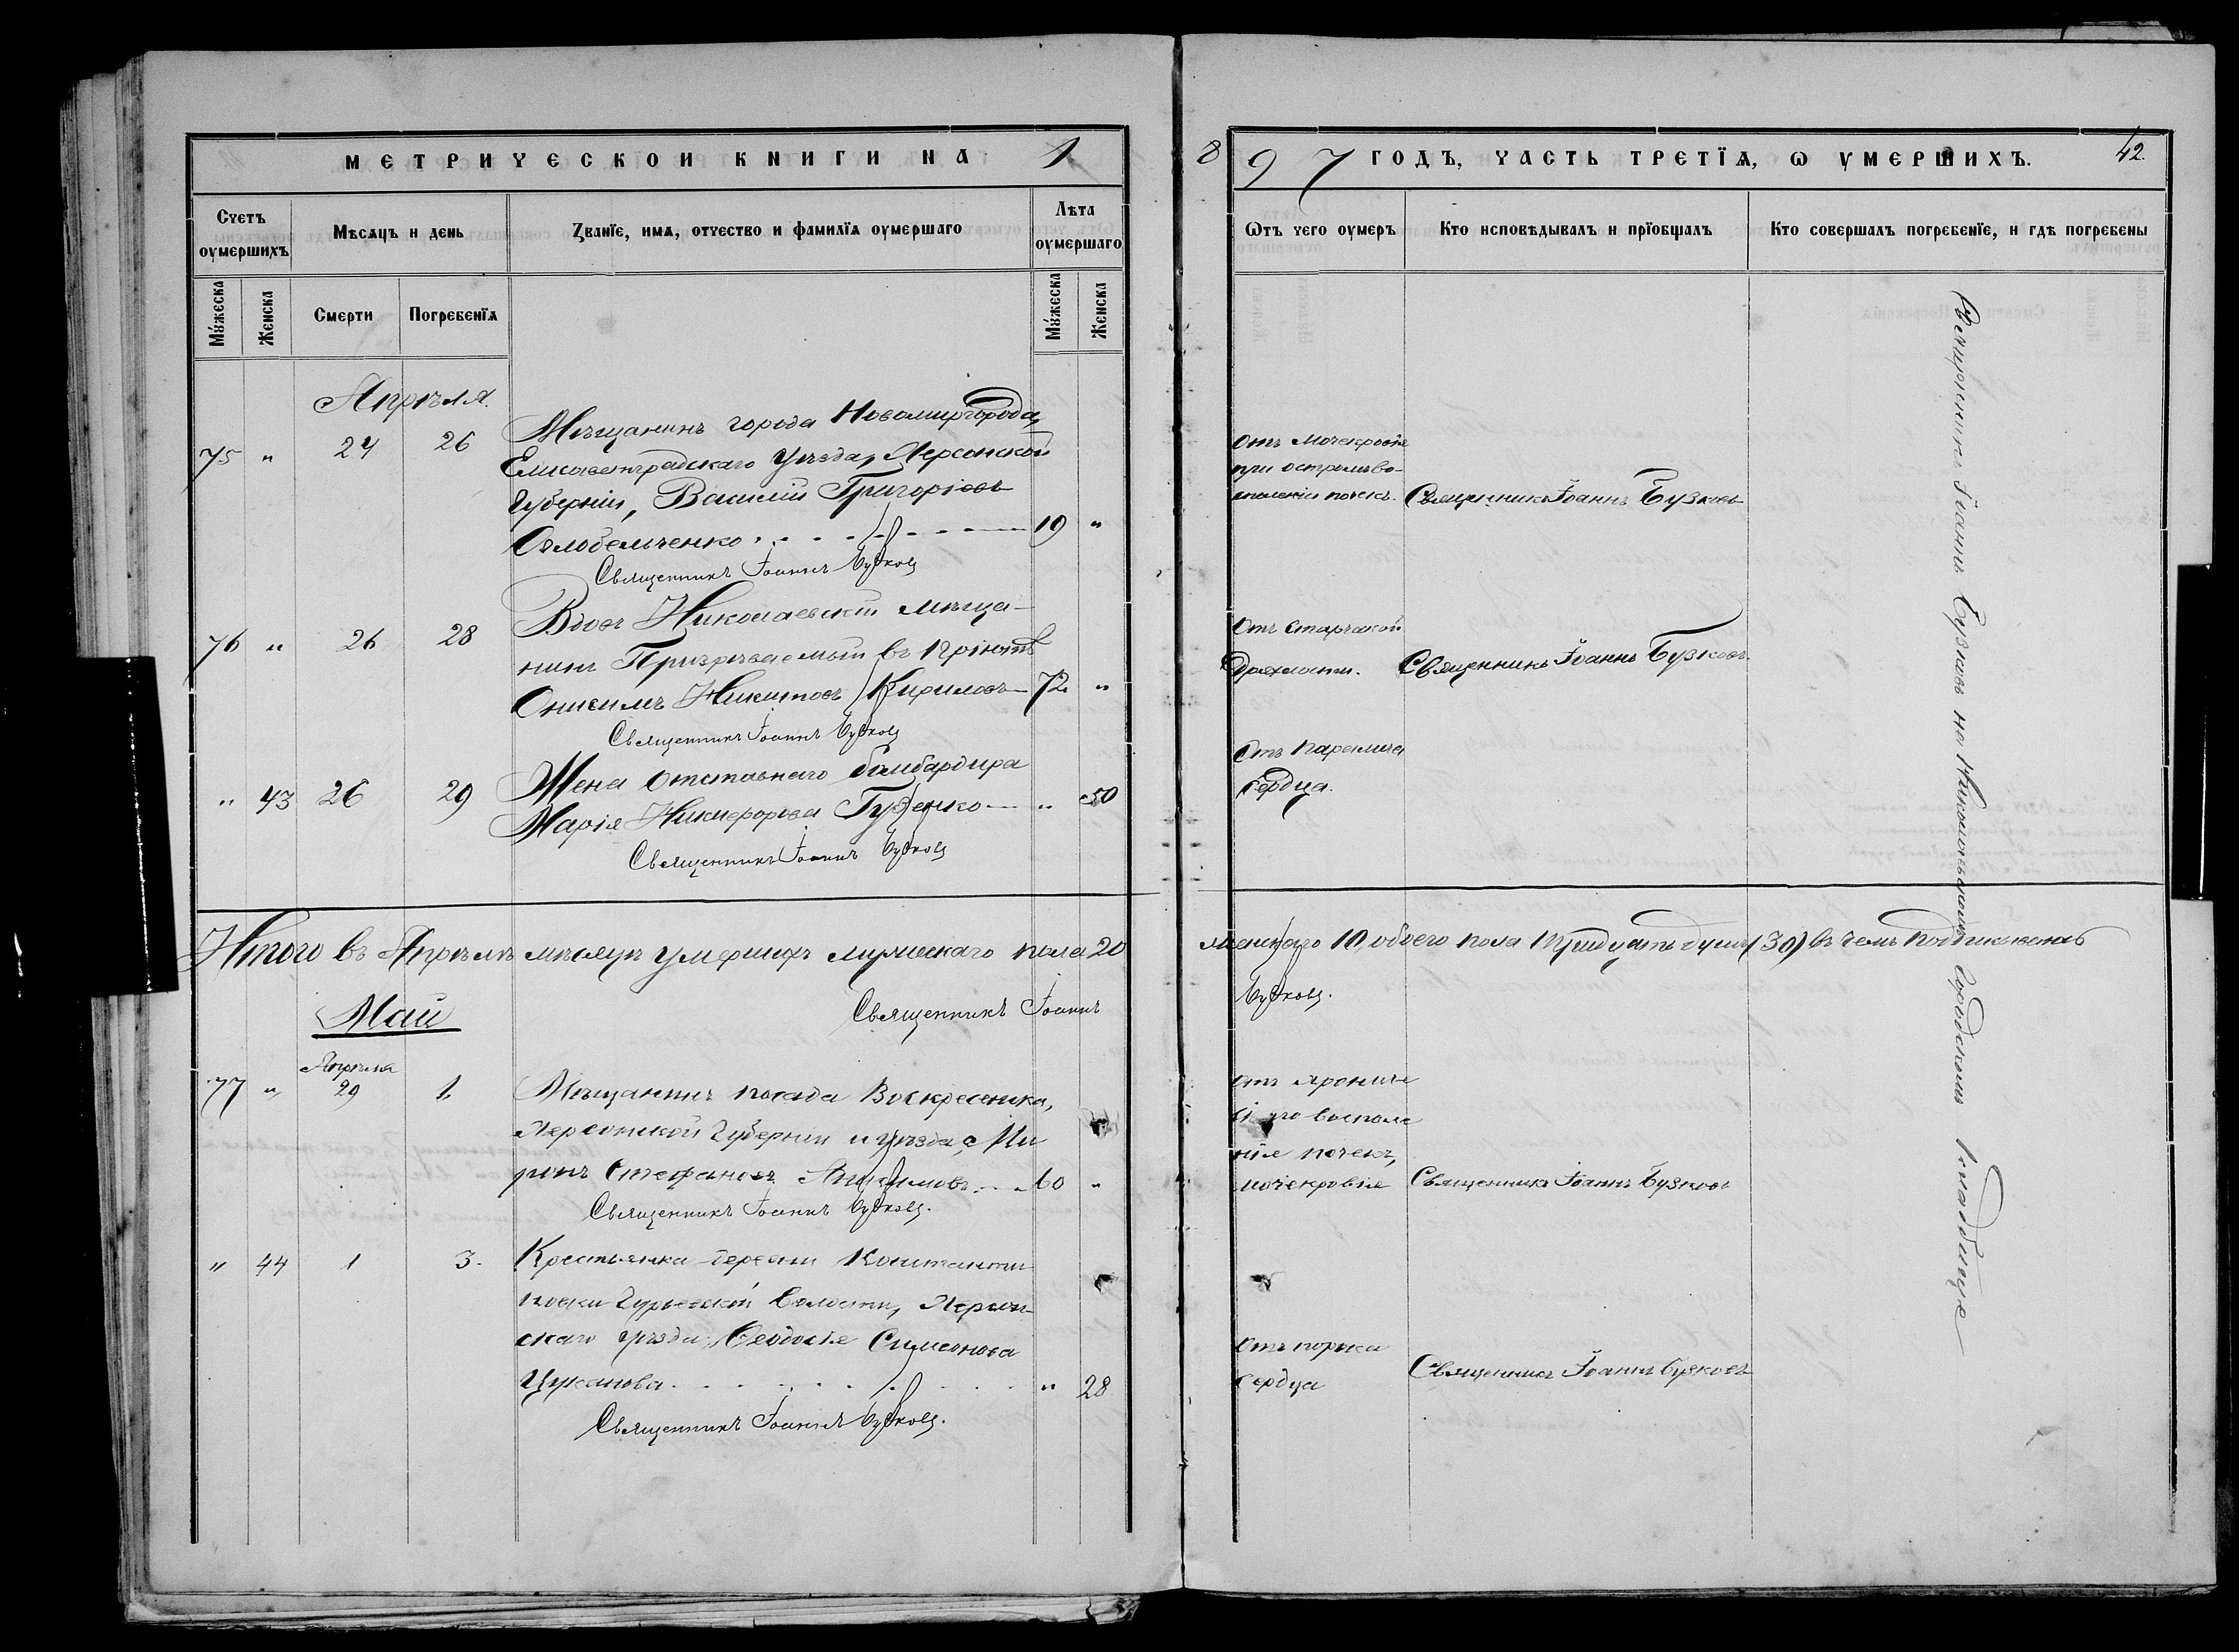 МЕТРИЧЕСКОИ КНИГИ НА 1
897 ГОДЪ, ЧАСТЬ ТРЕТЇѦ, Ѡ УМЕРШИХЪ.
42.
Счетъ оумершихъ
Мѣсяцъ и день
Званїе, имѧ, отчество и фамилїѧ оумершаго
Лѣта оумершаго
Ѿтъ чего оумеръ
Кто исповѣдывалъ и прїобщалъ
Кто совершалъ погребенїе, и гдѣ погребены
Мужеска
Женска
Смерти
Погребенїѧ
Мужеска
Женска
Апрѣля.
75 " 24 26
Мѣщанинъ города Новомиргорода,
Елисаветградскаго уѣзда, Херсонской
губерніи, Василій Григоріевъ
19 "
Священникъ Іоаннъ Бузковъ
Отъ мочекровія
при остромъ во-
спаленіи почекъ.
Священникъ Іоаннъ Бузковъ
76 " 26 28
Вдовъ Николаевскій мѣща-
нинъ Призрѣваемый въ Пріютѣ
Онисимъ Никитовъ Кириловъ 72 "
Священникъ Іоаннъ Бузковъ
Отъ старческой
дряхлости.
Священникъ Іоаннъ Бузковъ.
" 43 26 29
Жена отставнаго бомбардира
Марія Никифорова Гузенко " 50
Священникъ Іоаннъ Бузковъ
Отъ паралича
сердца.
Итого въ Апрѣлѣ мѣсяцѣ умершихъ мужескаго пола 20
женскаго 10 обоего пола тридцать душъ (30) въ чемъ подписуемсь
Священникъ Іоаннъ
Бузковъ.
Май
77 " Апрѣля 29 1.
Мѣщанинъ посада Воскресенска,
Херсонской губерніи и уѣзда, Ми
ронъ Стефановъ 60 "
Священникъ Іоаннъ Бузковъ.
отъ хрониче
воспале
ніе почекъ,
мочекровіе
Священникъ Іоаннъ Бузковъ
" 44 1 3.
Крестьянка деревни Константи
новки Гурьевской волости, Херсон-
скаго уѣзда, Ѳеодосія Симеонова
Цуканова " 28
Священникъ Іоаннъ Бузковъ.
отъ порока
сердца
Священникъ Іоаннъ Бузковъ
Священникъ Іоаннъ Бузковъ на Николаевскомъ Городскомъ кладбищѣ